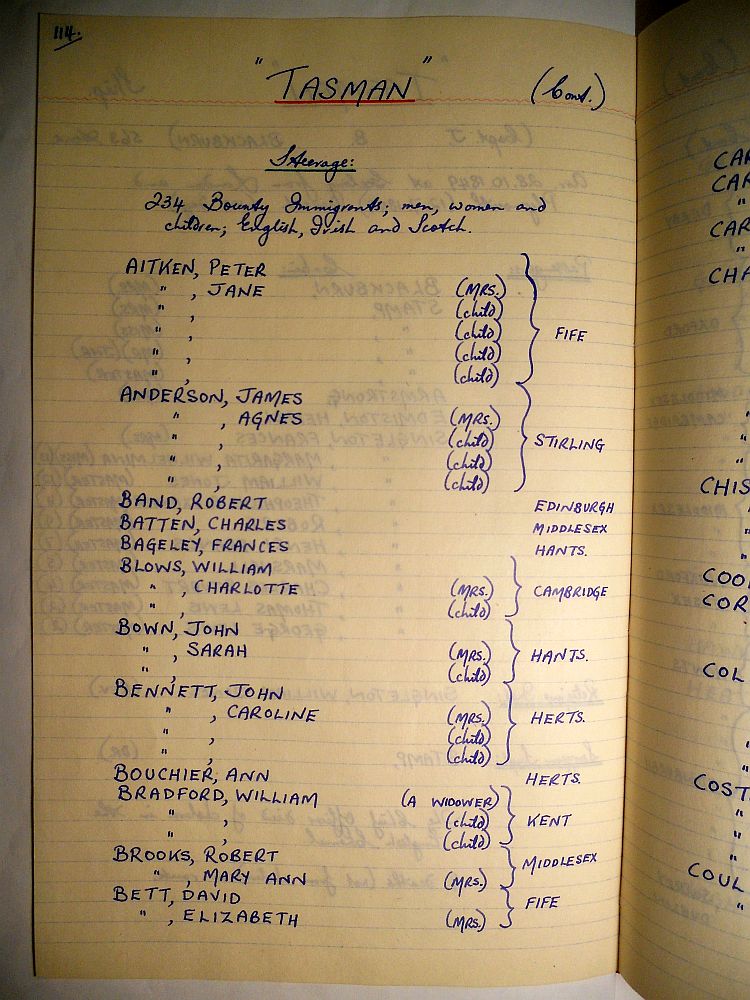 114.
"TASMAN" (Cont.)
Steerage:
234 Bounty Immigrants; men, women and
children; English, Irish and Scotch.
AITKEN, PETER
" , JANE (MRS.)
" , (child)
" , (child) FIFE
" , (child)
" , (child)
ANDERSON, JAMES
" , AGNES (MRS.)
" , (child) STIRLING
" , (child)
" , (child)
BAND, ROBERT EDINBURGH
BATTEN, CHARLES MIDDLESEX
BAGELEY, FRANCES HANTS.
BLOWS, WILLIAM
" , CHARLOTTE (MRS.) CAMBRIDGE
" , (child)
BOWN, JOHN
" , SARAH (MRS.) HANTS.
" , (child)
BENNETT, JOHN
" , CAROLINE (MRS.) HERTS.
" , (child)
" , (child)
BOUCHIER, ANN HERTS.
BRADFORD, WILLIAM (A WIDOWER)
" , (child) KENT
" , (child)
BROOKS, ROBERT MIDDLESEX
" , MARY ANN (MRS.)
BETT, DAVID FIFE
" , ELIZABETH (MRS.)
CAR
CAR
"
CAR
"
CHA
"
"
CHIS
"
"
COO
COR
COL
"
"
COST
"
"
"
COUL
"